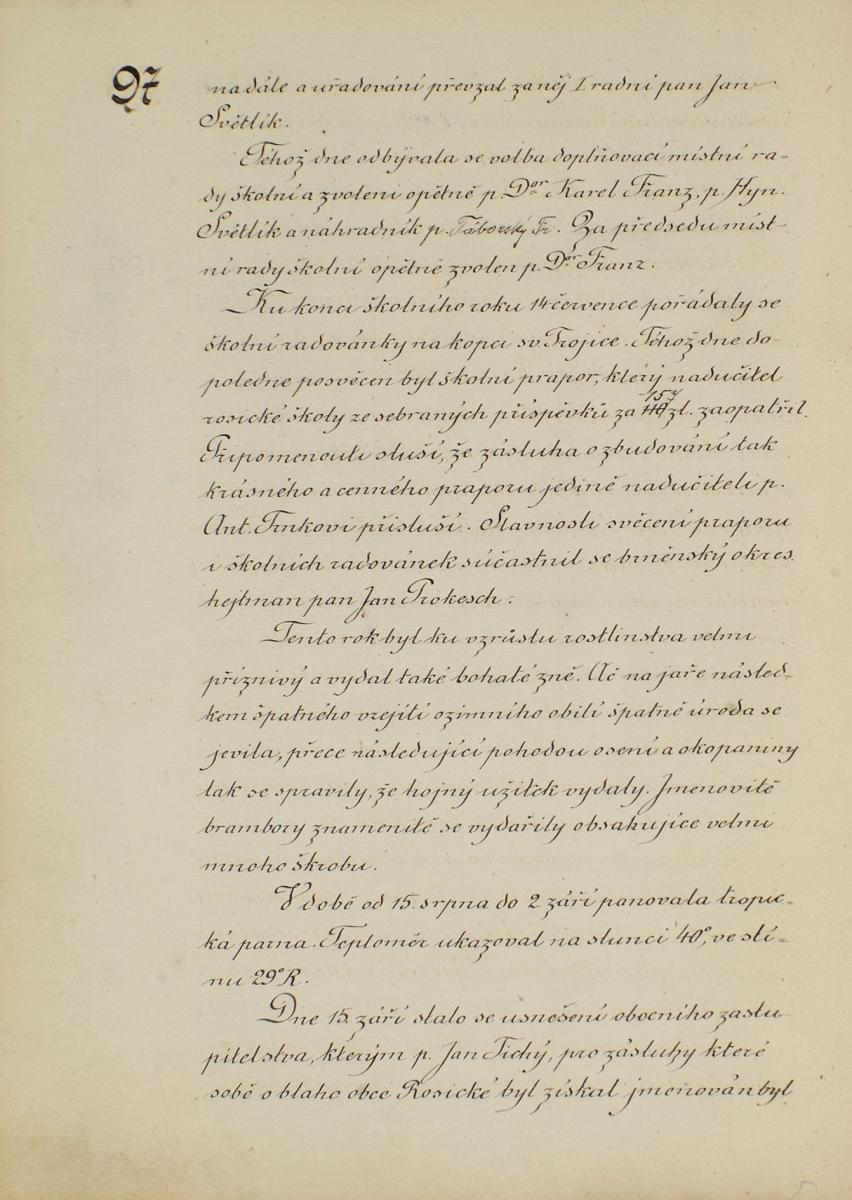 97
na dále a uřadování převzal za něj I. radní pan Jan
Světlík.
Téhož dne odbývala se volba doplňovací místní ra-
dy školní a zvoleni opětně p. Dor Karel Franz, p. Hyn.
Světlík a náhradník p. Táborský Fr. Za předsedu míst-
ní rady školní opětně zvolen p. Dor Franz.
Ku konci školního roku 14 července pořádaly se
školní radovánky na kopci sv Trojice. Téhož dne do-
poledne posvěcen byl školní prapor, který nadučitel
rosické školy ze sebraných příspěvků za 157 zl. zaopatřil.
Připomenouti sluší, že zásluha o zbudování tak
krásného a cenného praporu jedině nadučiteli p.
Ant. Trnkovi přísluší. Slavnosti svěcení praporu
i školních radovánek súčastnil se brněnský okres.
hejtman pan Jan Prokesch.
Tento rok byl ku vzrůstu rostlinstva velmi
příznivý a vydal také bohaté zně. Ač na jaře násled-
kem špatného vzejití ozimního obilí špatně úroda se
jevila, přece následující pohodou osení a okopaniny
tak se spravily, že hojný užitek vydaly. Jmenovitě
brambory znamenitě se vydařily obsahujíce velmi
mnoho škrobu.
V době od 15. srpna do 2 září panovala tropic-
ká parna. Teploměr ukazoval na slunci 40°, ve stí-
nu 29°R.
Dne 15. září stalo se usnešení obecního zastu-
pitelstva, kterým p. Jan Tichý, pro zásluhy které
sobě o blaho obce Rosické byl získal jmenován byl